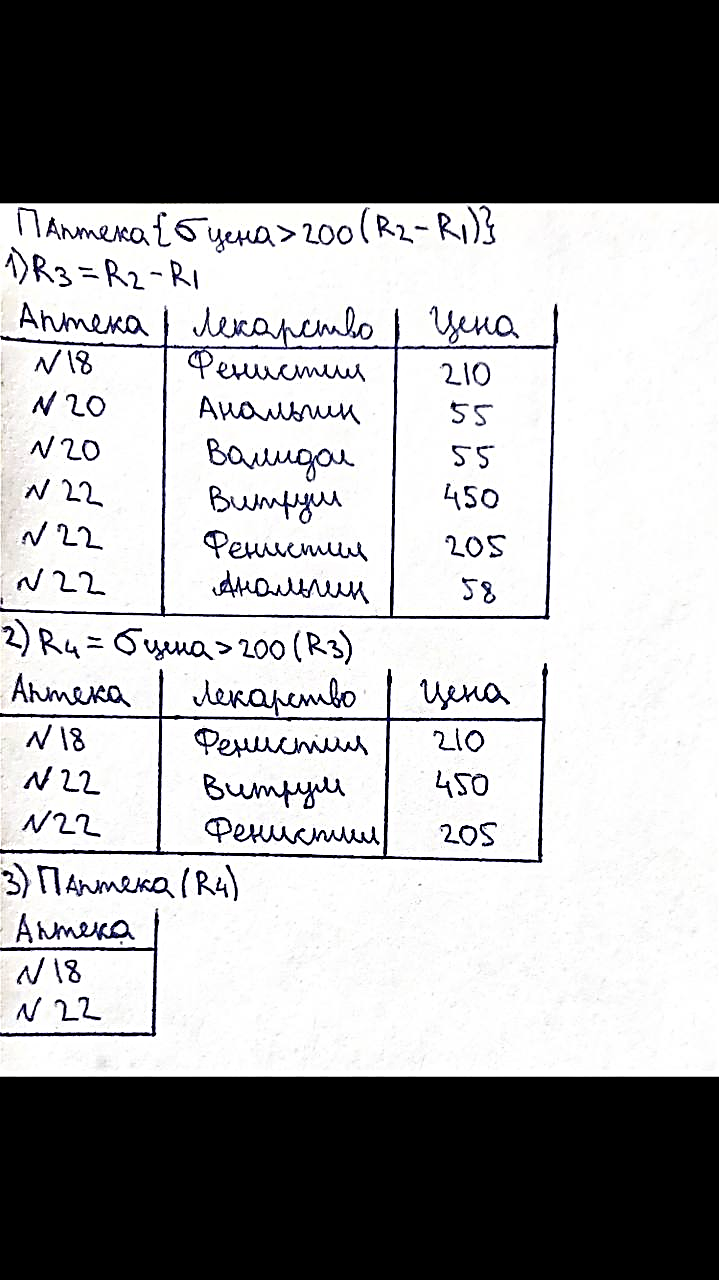 ПАптека{σцена>200(R2-R1)}
1)R3=R2-R1
Аптека Лекарство Цена
N18 Фенистил 210
N20 Анальгин 55
N20 Валидол 55
N22 Витрум 450
N22 Фенистил 205
N22 Анальгин 58
2)R4=σцена>200(R3)
Аптека Лекарство Цена
N18 Фенистил 210
N22 Витрум 450
N22 Фенистил 205
3)ПАптека(R4)
Аптека
N18
N22